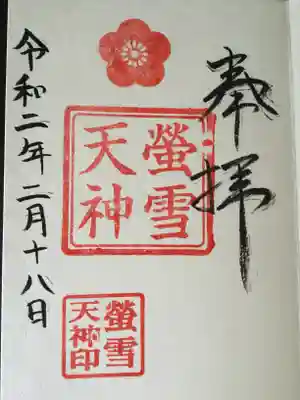 奉拝
螢雪
天神
螢雪
天神印
令和二年二月十八日